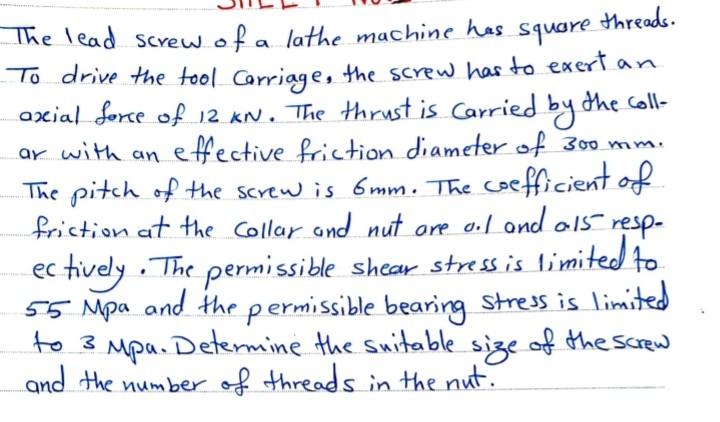 The lead screw of a lathe machine has square threads.
To drive the tool Carriage, the screw has to exert an
axial force of 12 kN. The thrust is Carried by the Coll-
ar with an effective friction diameter of 300 mm.
The pitch of the screw is 6mm. The coefficient of
friction at the Collar and nut are 0.1 and 0.15 resp-
ectively. The permissible shear stress is limited to
55 Mpa and the permissible bearing stress is limited
to 3 Mpa. Determine the suitable size of the screw
and the number of threads in the nut.